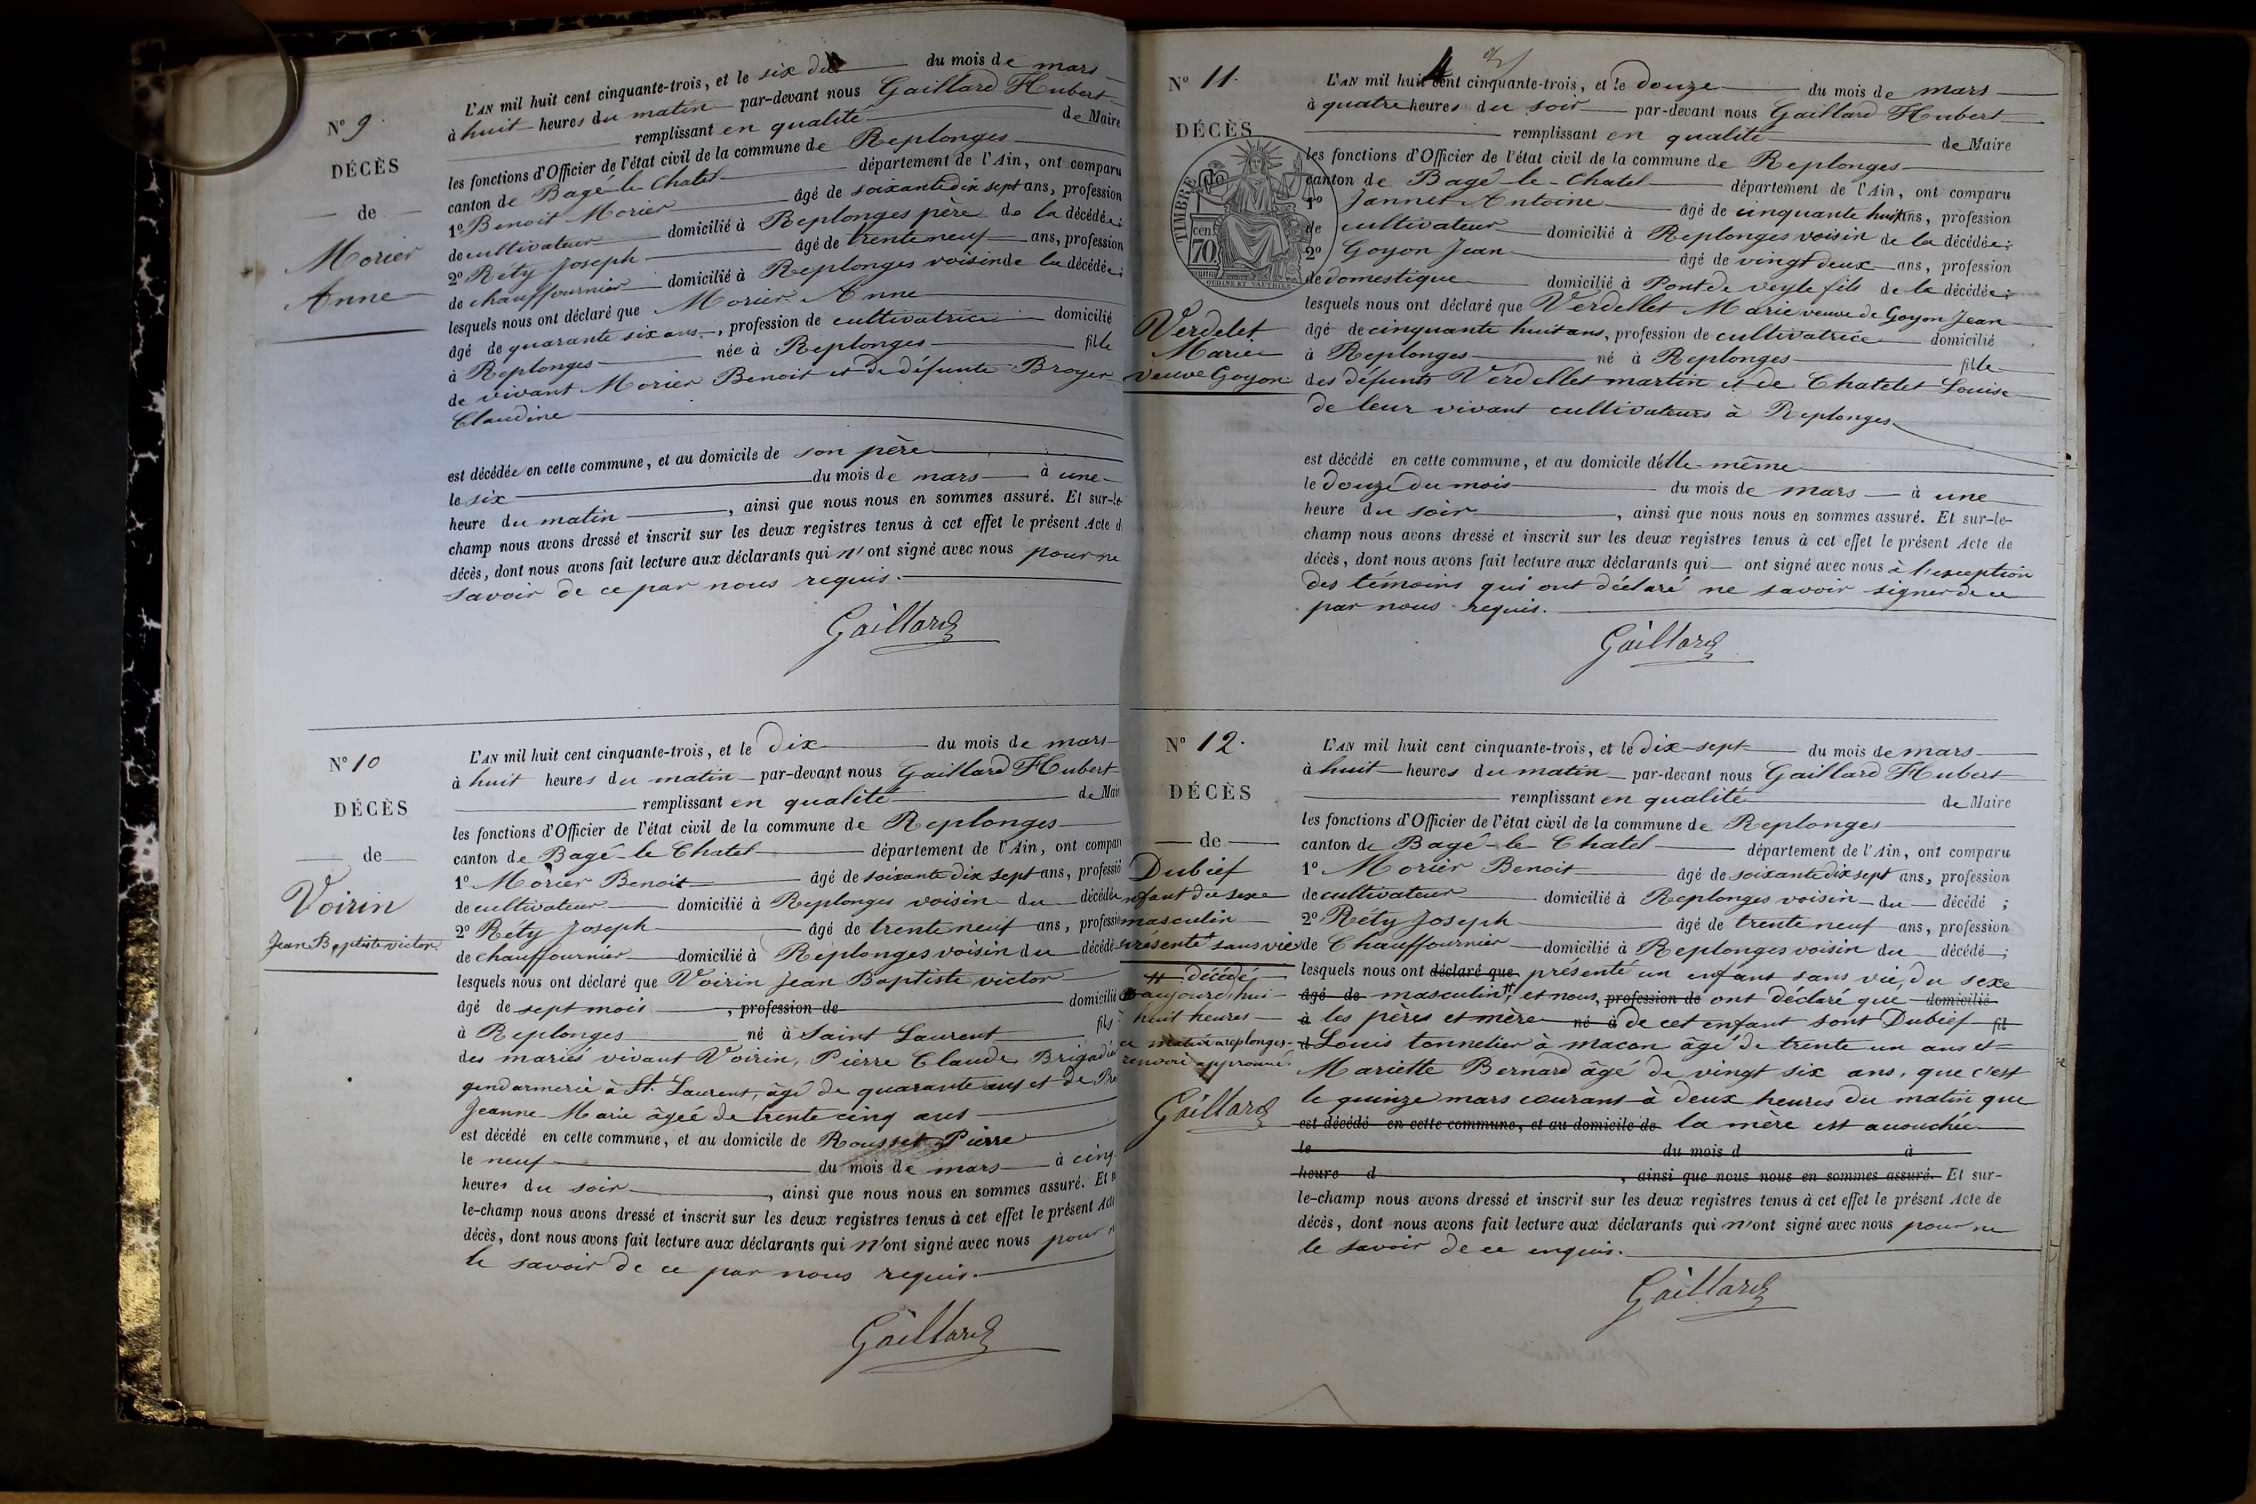 N° 9.
DÉCÈS
de
Morier
Anne
L'AN mil huit cent cinquante-trois, et le six du mois de mars
à huit heures du matin par-devant nous Gaillard Hubert
remplissant en qualité de Maire
les fonctions d'Officier de l'état civil de la commune de Replonges
canton de Bagé-le Chatel département de l'Ain, ont comparu
1° Benoit Morier âgé de soixante dix sept ans, profession
de cultivateur domicilié à Replonges père de la décédée;
2° Réty Joseph âgé de trente neuf ans, profession
de chauffournier domicilié à Replonges voisin de la décédée;
lesquels nous ont déclaré que Morier Anne
âgé de quarante six ans, profession de cultivatrice domicilié
à Replonges née à Replonges fille
de vivant Morier Benoit et de défunte Broyer
Claudine
est décédée en cette commune, et au domicile de son père
le six du mois de mars à une
heure du matin, ainsi que nous nous en sommes assuré. Et sur-le-
champ nous avons dressé et inscrit sur les deux registres tenus à cet effet le présent Acte d
décès, dont nous avons fait lecture aux déclarants qui n'ont signé avec nous pour ne
savoir de ce par nous requis.
Gaillard
N° 10
DÉCÈS
de
Voirin
Jean Baptiste victor
L'AN mil huit cent cinquante-trois, et le Dix du mois de mars
à huit heures du matin par-devant nous Gaillard Hubert
remplissant en qualité de Mai
les fonctions d'Officier de l'état civil de la commune de Replonges
canton de Bagé-le Chatel département de l'Ain, ont compar
1° Morier Benoit âgé de soixante dix sept ans, professi
de cultivateur domicilié à Replonges voisin du décédé
2° Réty Joseph âgé de trente neuf ans, professi
de chauffournier domicilié à Replonges voisin du décédé
lesquels nous ont déclaré que Voirin Jean Baptiste victor
âgé de sept mois, profession de domicilié
à Replonges né à Saint Laurent fils
des mariés vivant Voirin, Pierre Claude Brigadi
gendarmerie à St. Laurent, âgé de quarante ans et de
Jeanne Marie âgée de trente cinq ans
est décédé en cette commune, et au domicile de Rousset Pierre
le neuf du mois de mars à cinq
heures du soir, ainsi que nous nous en sommes assuré. Et
le-champ nous avons dressé et inscrit sur les deux registres tenus à cet effet le présent Act
décès, dont nous avons fait lecture aux déclarants qui n'ont signé avec nous pour
le savoir de ce par nous requis.
Gaillard
N° 11.
DÉCÈS
TIMBRE
70
Verdelet
Marie
veuve Goyon
L'AN mil huit cent cinquante-trois, et le douze du mois de mars
à quatre heures du soir par-devant nous Gaillard Hubert
remplissant en qualité de Maire
les fonctions d'Officier de l'état civil de la commune de Replonges
canton de Bagé-le-Chatel département de l'Ain, ont comparu
1° Jannet Antoine âgé de cinquante huit ans, profession
de cultivateur domicilié à Replonges voisin de la décédée;
2° Goyon Jean âgé de vingt deux ans, profession
de domestique domicilié à Pont de veyle fils de la décédée;
lesquels nous ont déclaré que Verdellet Marie veuve de Goyon Jean
âgé de cinquante huit ans, profession de cultivatrice domicilié
à Replonges né à Replonges fille
des défunts Verdellet martin et de Chatelet Louise
de leur vivant cultivateurs à Replonges
est décédé en cette commune, et au domicile d'elle-même
le douze du mois du mois de mars à une
heure du soir, ainsi que nous nous en sommes assuré. Et sur-le-
champ nous avons dressé et inscrit sur les deux registres tenus à cet effet le présent Acte de
décès, dont nous avons fait lecture aux déclarants qui ont signé avec nous à l'exception
des témoins qui ont déclaré ne savoir signer de ce
par nous requis.
Gaillard
N° 12.
DÉCÈS
de
Dubief
enfant du sexe
masculin
présenté sans vie
# décédé
aujourd'hui
huit heures
matin à replonges
renvoi approuvé
Gaillard
L'AN mil huit cent cinquante-trois, et le dix-sept du mois de mars
à huit heures du matin par-devant nous Gaillard Hubert
remplissant en qualité de Maire
les fonctions d'Officier de l'état civil de la commune de Replonges
canton de Bagé-le Chatel département de l'Ain, ont comparu
1° Morier Benoit âgé de soixante dix sept ans, profession
de cultivateur domicilié à Replonges voisin du décédé;
2° Réty Joseph âgé de trente neuf ans, profession
de Chauffournier domicilié à Replonges voisin du décédé;
lesquels nous ont déclaré que présenté un enfant sans vie, du sexe
âgé de masculin #, et nous, profession de ont déclaré que domicilié
à les pères et mère né à de cet enfant sont Dubief fil
d Louis tonnelier à macon âgé de trente un ans et
Mariette Bernard âgé de vingt six ans, que c'est
le quinze mars courant à deux heures du matin que
est décédé en cette commune, et au domicile de la mère est accouchée
le du mois d à
heure d, ainsi que nous nous en sommes assuré. Et sur-
le-champ nous avons dressé et inscrit sur les deux registres tenus à cet effet le présent Acte de
décès, dont nous avons fait lecture aux déclarants qui n'ont signé avec nous pour ne
le savoir de ce enquis.
Gaillard